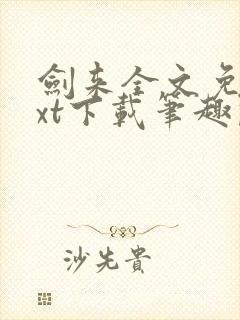 劍来全文免
xt下載筆趣
沙先貴